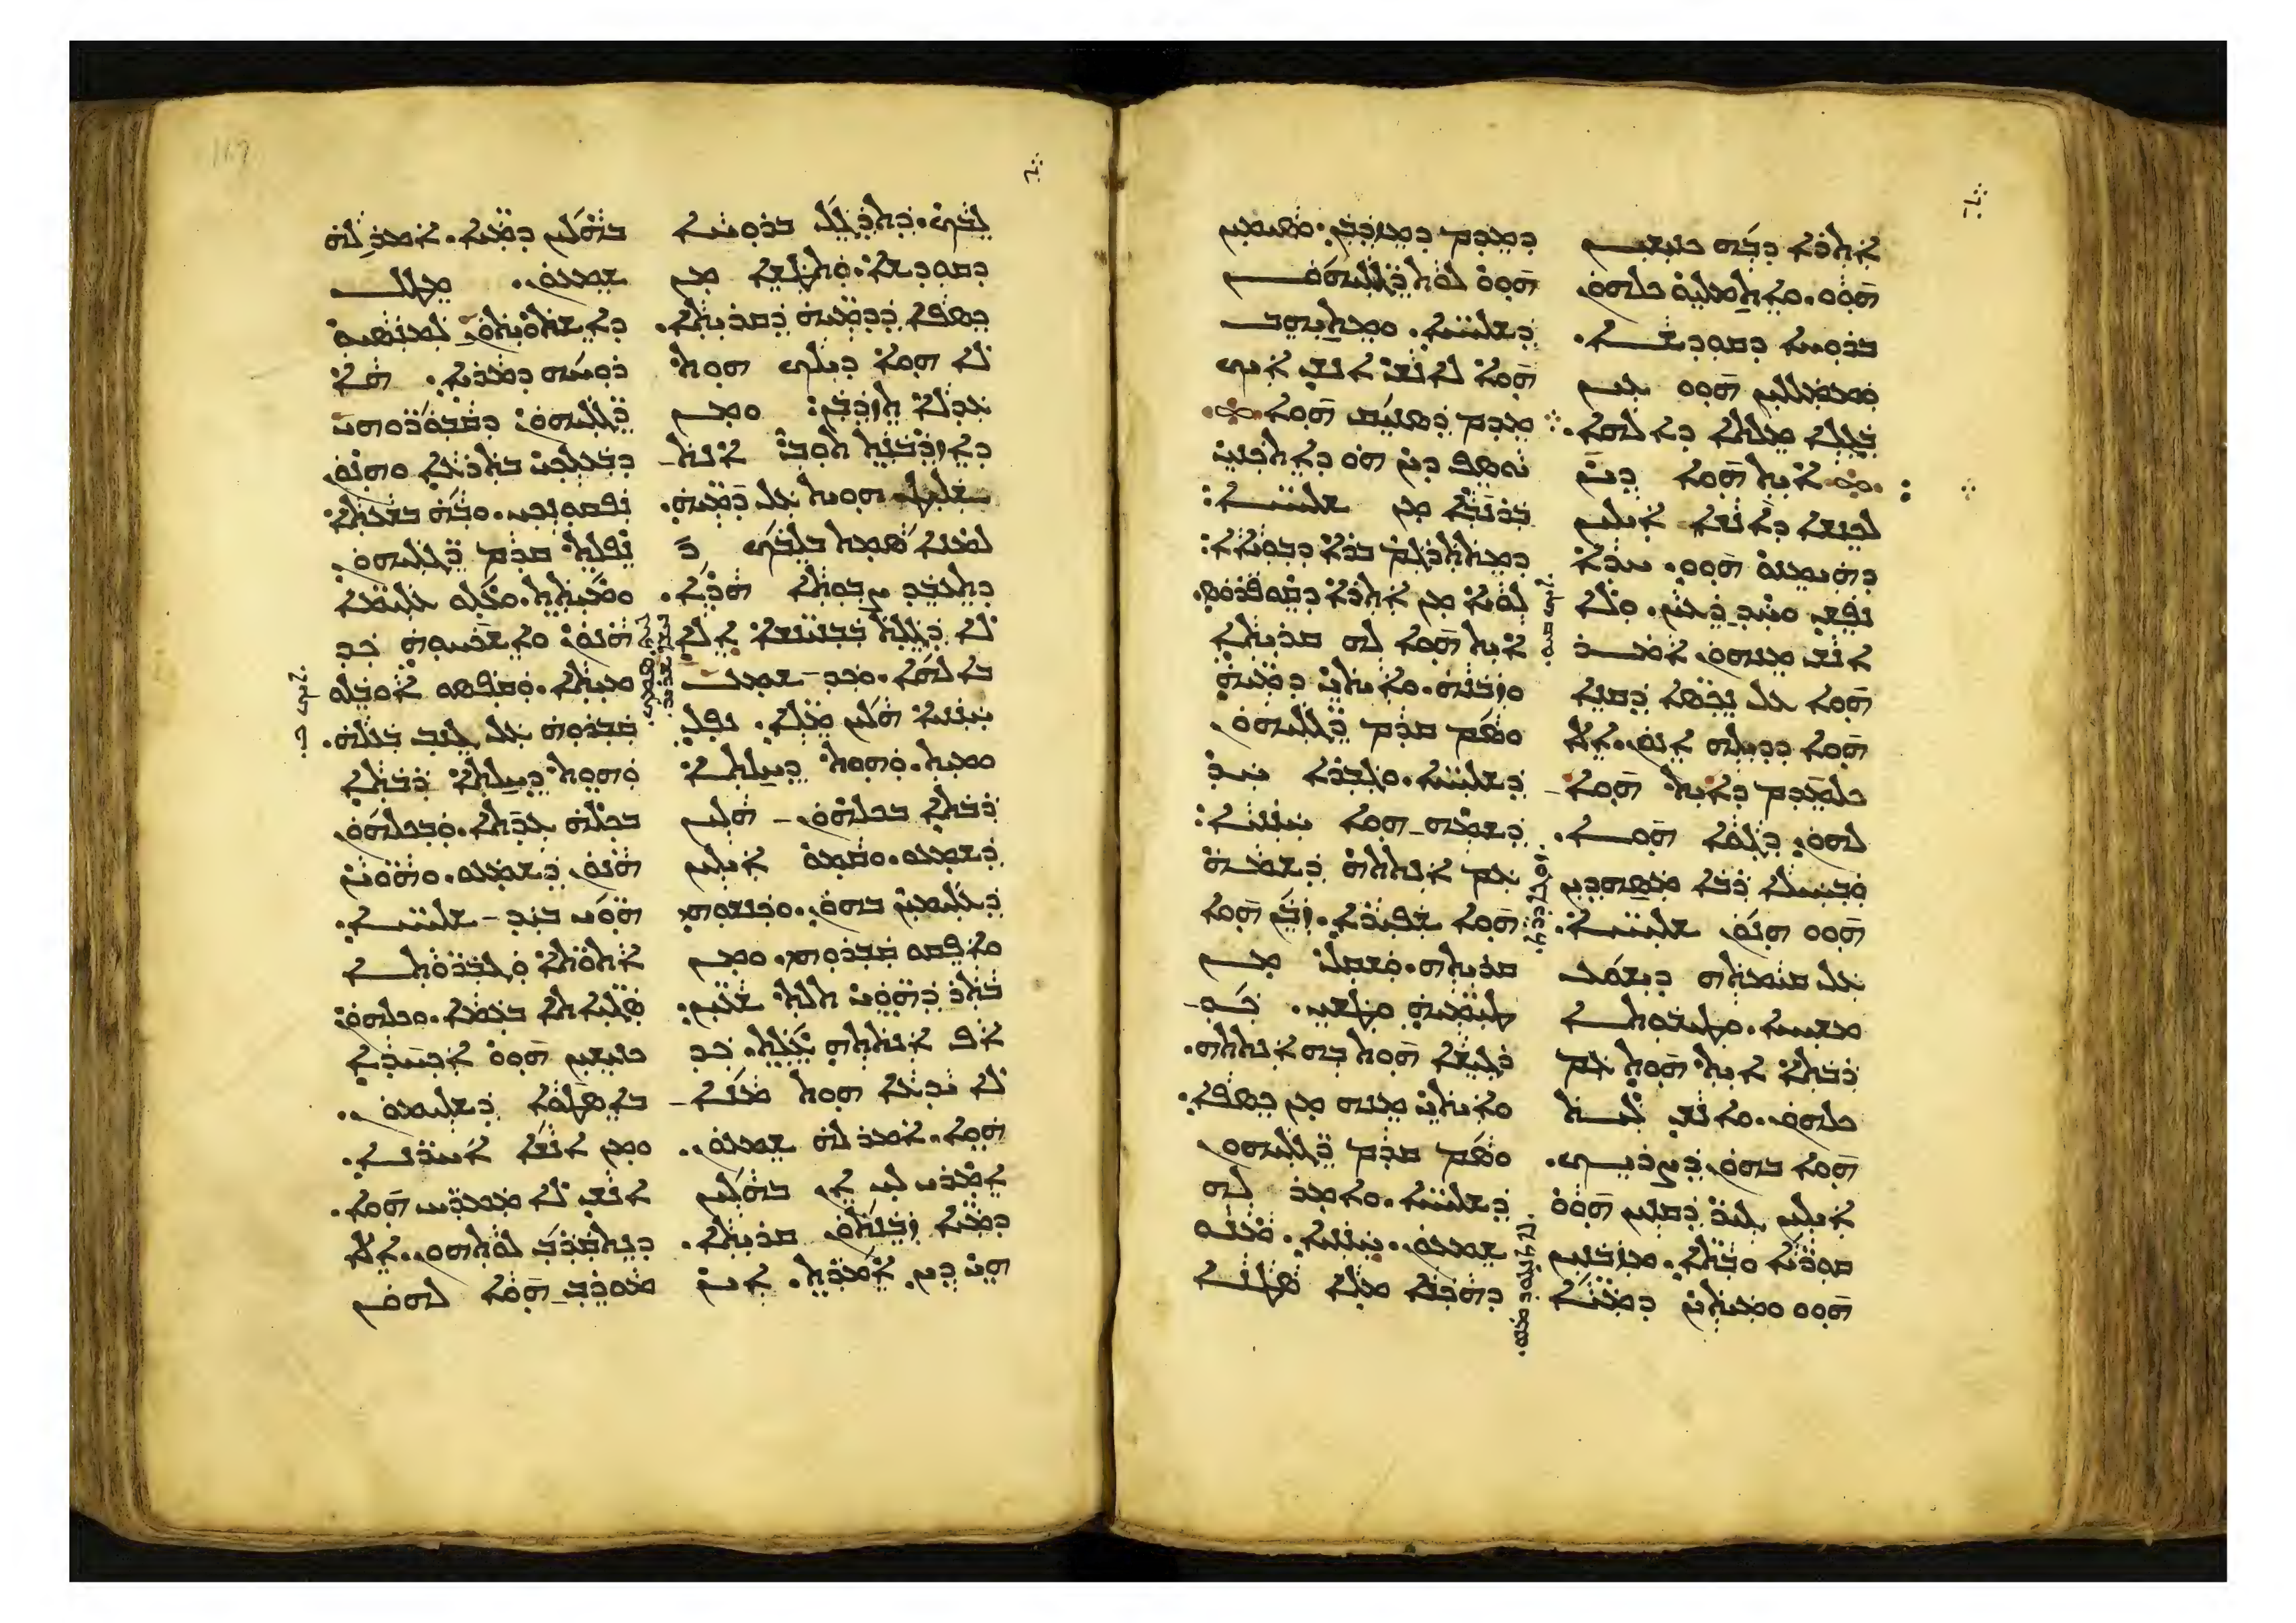 ܐܬܪܐ ܕܒܗ ܟܢܝܫܝܢ
ܗܘܘ. ܘܐܬܡܠܝܘ ܟܠܗܘܢ
ܒܪܘܚܐ ܕܩܘܕܫܐ.
ܘܡܡܠܠܝܢ ܗܘܘ ܥܝܢ
ܒܓܠܐ ܡܠܬܐ ܕܐܠܗܐ.
ܐܝܬ ܗܘܐ ܕܝܢ
ܠܟܢܫܐ ܕܐܢܫܐ ܐܝܠܝܢ
ܕܗܝܡܢܘ ܗܘܘ. ܚܕܐ
ܢܦܫ ܘܚܕ ܪܥܝܢ. ܘܠܐ
ܐܢܫ ܡܢܗܘܢ ܐܡܪ
ܗܘܐ ܥܠ ܢܟܣܐ ܕܩܢܐ
ܗܘܐ ܕܕܝܠܗ ܐܢܘܢ. ܐܠܐ
ܟܠܡܕܡ ܕܐܝܬ ܗܘܐ
ܠܗܘܢ ܕܓܘܐ ܗܘܐ.
ܘܒܚܝܠܐ ܪܒܐ ܡܣܗܕܝܢ
ܗܘܘ ܗܢܘܢ ܫܠܝܚܐ.
ܥܠ ܩܝܡܬܗ ܕܝܫܘܥ
ܡܫܝܚܐ. ܘܛܝܒܘܬܐ
ܪܒܬܐ ܐܝܬ ܗܘܬ ܥܡ
ܟܠܗܘܢ. ܘܐܢܫ ܠܝܬ
ܗܘܐ ܒܗܘܢ ܕܨܪܝܟ.
ܐܝܠܝܢ ܓܝܪ ܕܩܢܝܢ ܗܘܘ
ܩܘܪܝܐ ܘܒܬܐ. ܡܙܒܢܝܢ
ܗܘܘ ܘܡܝܬܝܢ ܕܡܝܐ
ܕܡܕܡ ܕܡܙܕܒܢ. ܘܣܝܡܝܢ
ܗܘܘ ܠܘܬ ܪܓܠܝܗܘܢ
ܕܫܠܝܚܐ. ܘܡܬܝܗܒ
ܗܘܐ ܠܐܢܫ ܐܢܫ ܐܝܟ
ܡܕܡ ܕܣܢܝܩ ܗܘܐ.
ܝܘܣܦ ܕܝܢ ܗܘ ܕܐܬܟܢܝ
ܒܪܢܒܐ ܡܢ ܫܠܝܚܐ:
ܕܡܬܬܪܓܡ ܒܪܐ ܕܒܘܝܐܐ:
ܠܘܝܐ ܡܢ ܐܬܪܐ ܕܩܘܦܪܘܣ.
ܐܝܬ ܗܘܐ ܠܗ ܩܪܝܬܐ
ܘܙܒܢܗ. ܘܐܝܬܝ ܕܡܝܗ
ܘܣܡ ܩܕܡ ܪܓܠܝܗܘܢ
ܕܫܠܝܚܐ. ܘܓܒܪܐ ܚܕ
ܕܫܡܗ ܗܘܐ ܚܢܢܝܐ:
ܥܡ ܐܢܬܬܗ ܕܫܡܗ
ܗܘܐ ܫܦܝܪܐ. ܙܒܢ ܗܘܐ
ܩܪܝܬܗ. ܘܫܩܠ ܡܢ
ܛܝܡܝܗ ܘܛܫܝ. ܟܕ
ܪܓܝܫܐ ܗܘܬ ܒܗ ܐܢܬܬܗ.
ܘܐܝܬܝ ܡܢܗ ܡܢ ܟܣܦܐ.
ܘܣܡ ܩܕܡ ܪܓܠܝܗܘܢ
ܕܫܠܝܚܐ. ܘܐܡܪ ܠܗ
ܫܡܥܘܢ. ܚܢܢܝܐ. ܡܢܘ
ܕܗܟܢܐ ܡܠܐ ܣܛܢܐ
ܠܒܟ. ܕܬܕܓܠ ܒܪܘܚܐ
ܕܩܘܕܫܐ. ܘܬܛܫܐ ܡܢ
ܟܣܦܐ ܕܕܡܝܗ ܕܩܪܝܬܐ.
ܠܐ ܗܘܐ ܕܝܠܟ ܗܘܬ
ܥܕܠܐ ܬܙܕܒܢ: ܘܡܢ
ܕܐܙܕܒܢܬ ܬܘܒ ܐܢܬ
ܫܠܝܛ ܗܘܝܬ ܥܠ ܕܡܝܗ.
ܠܡܢܐ ܣܡܬ ܒܠܒܟ
ܕܬܥܒܕ ܨܒܘܬܐ ܗܕܐ.
ܠܐ ܕܓܠܬ ܒܒܢܝܢܫܐ ܐܠܐ
ܒܐܠܗܐ. ܘܟܕ ܫܡܥ
ܚܢܢܝܐ ܗܠܝܢ ܡܠܐ. ܢܦܠ
ܘܡܝܬ. ܘܗܘܬ ܕܚܠܬܐ
ܪܒܬܐ ܒܟܠܗܘܢ ܗܠܝܢ
ܕܫܡܥܘ. ܘܩܡܘ ܐܝܠܝܢ
ܕܥܠܝܡܝܢ ܒܗܘܢ. ܘܟܢܫܘܗܝ
ܘܐܦܩܘ ܩܒܪܘܗܝ. ܘܡܢ
ܒܬܪ ܕܗܘܝ ܬܠܬ ܫܥܝܢ.
ܐܦ ܐܢܬܬܗ ܥܠܬ. ܟܕ
ܠܐ ܝܕܥܐ ܗܘܬ ܡܢܐ
ܗܘܐ. ܐܡܪ ܠܗ ܫܡܥܘܢ.
ܐܡܪܝ ܠܝ ܐܢ ܒܗܠܝܢ
ܕܡܝܐ ܙܒܢܬܘܢ ܩܪܝܬܐ.
ܗܝ ܕܝܢ ܐܡܪܬ. ܐܝܢ
ܒܗܠܝܢ ܕܡܝܐ. ܐܡܪ ܠܗ
ܫܡܥܘܢ. ܡܛܠ
ܕܐܫܬܘܝܬܘܢ ܠܡܢܣܝܘ
ܪܘܚܗ ܕܡܪܝܐ. ܗܐ
ܪܓܠܝܗܘܢ ܕܩܒܘܪܘܗܝ
ܕܒܥܠܟܝ ܒܬܪܥܐ ܘܗܢܘܢ
ܢܦܩܘܢܟܝ. ܘܒܗ ܒܫܥܬܐ
ܢܦܠܬ ܩܕܡ ܪܓܠܝܗܘܢ
ܘܡܝܬܬ. ܘܥܠܘ ܥܠܝܡܐ
ܗܢܘܢ ܘܐܫܟܚܘܗ ܟܕ
ܡܝܬܐ. ܘܩܦܣܘ ܐܘܒܠܘ
ܩܒܪܘܗ ܥܠ ܓܢܒ ܒܥܠܗ.
ܘܗܘܬ ܕܚܠܬܐ ܪܒܬܐ
ܒܟܠܗ ܥܕܬܐ. ܘܒܟܠܗܘܢ
ܗܢܘܢ ܕܫܡܥܘ. ܘܗܘܝܢ
ܗܘܝ ܒܝܕ ܫܠܝܚܐ.
ܐܬܘܬܐ ܘܓܒܪܘܬܐ
ܣܓܝܐܬܐ ܒܥܡܐ. ܘܟܠܗܘܢ
ܟܢܝܫܝܢ ܗܘܘ ܐܟܚܕܐ
ܒܐܣܛܘܐ ܕܫܠܝܡܘܢ.
ܘܡܢ ܐܢܫܐ ܐܚܪܢܐ.
ܐܢܫ ܠܐ ܡܡܪܚ ܗܘܐ.
ܕܢܬܩܪܒ ܠܘܬܗܘܢ. ܐܠܐ
ܡܘܪܒ ܗܘܐ ܠܗܘܢ